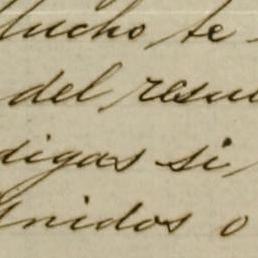 lucho te
del resul
digas si
Unidos o